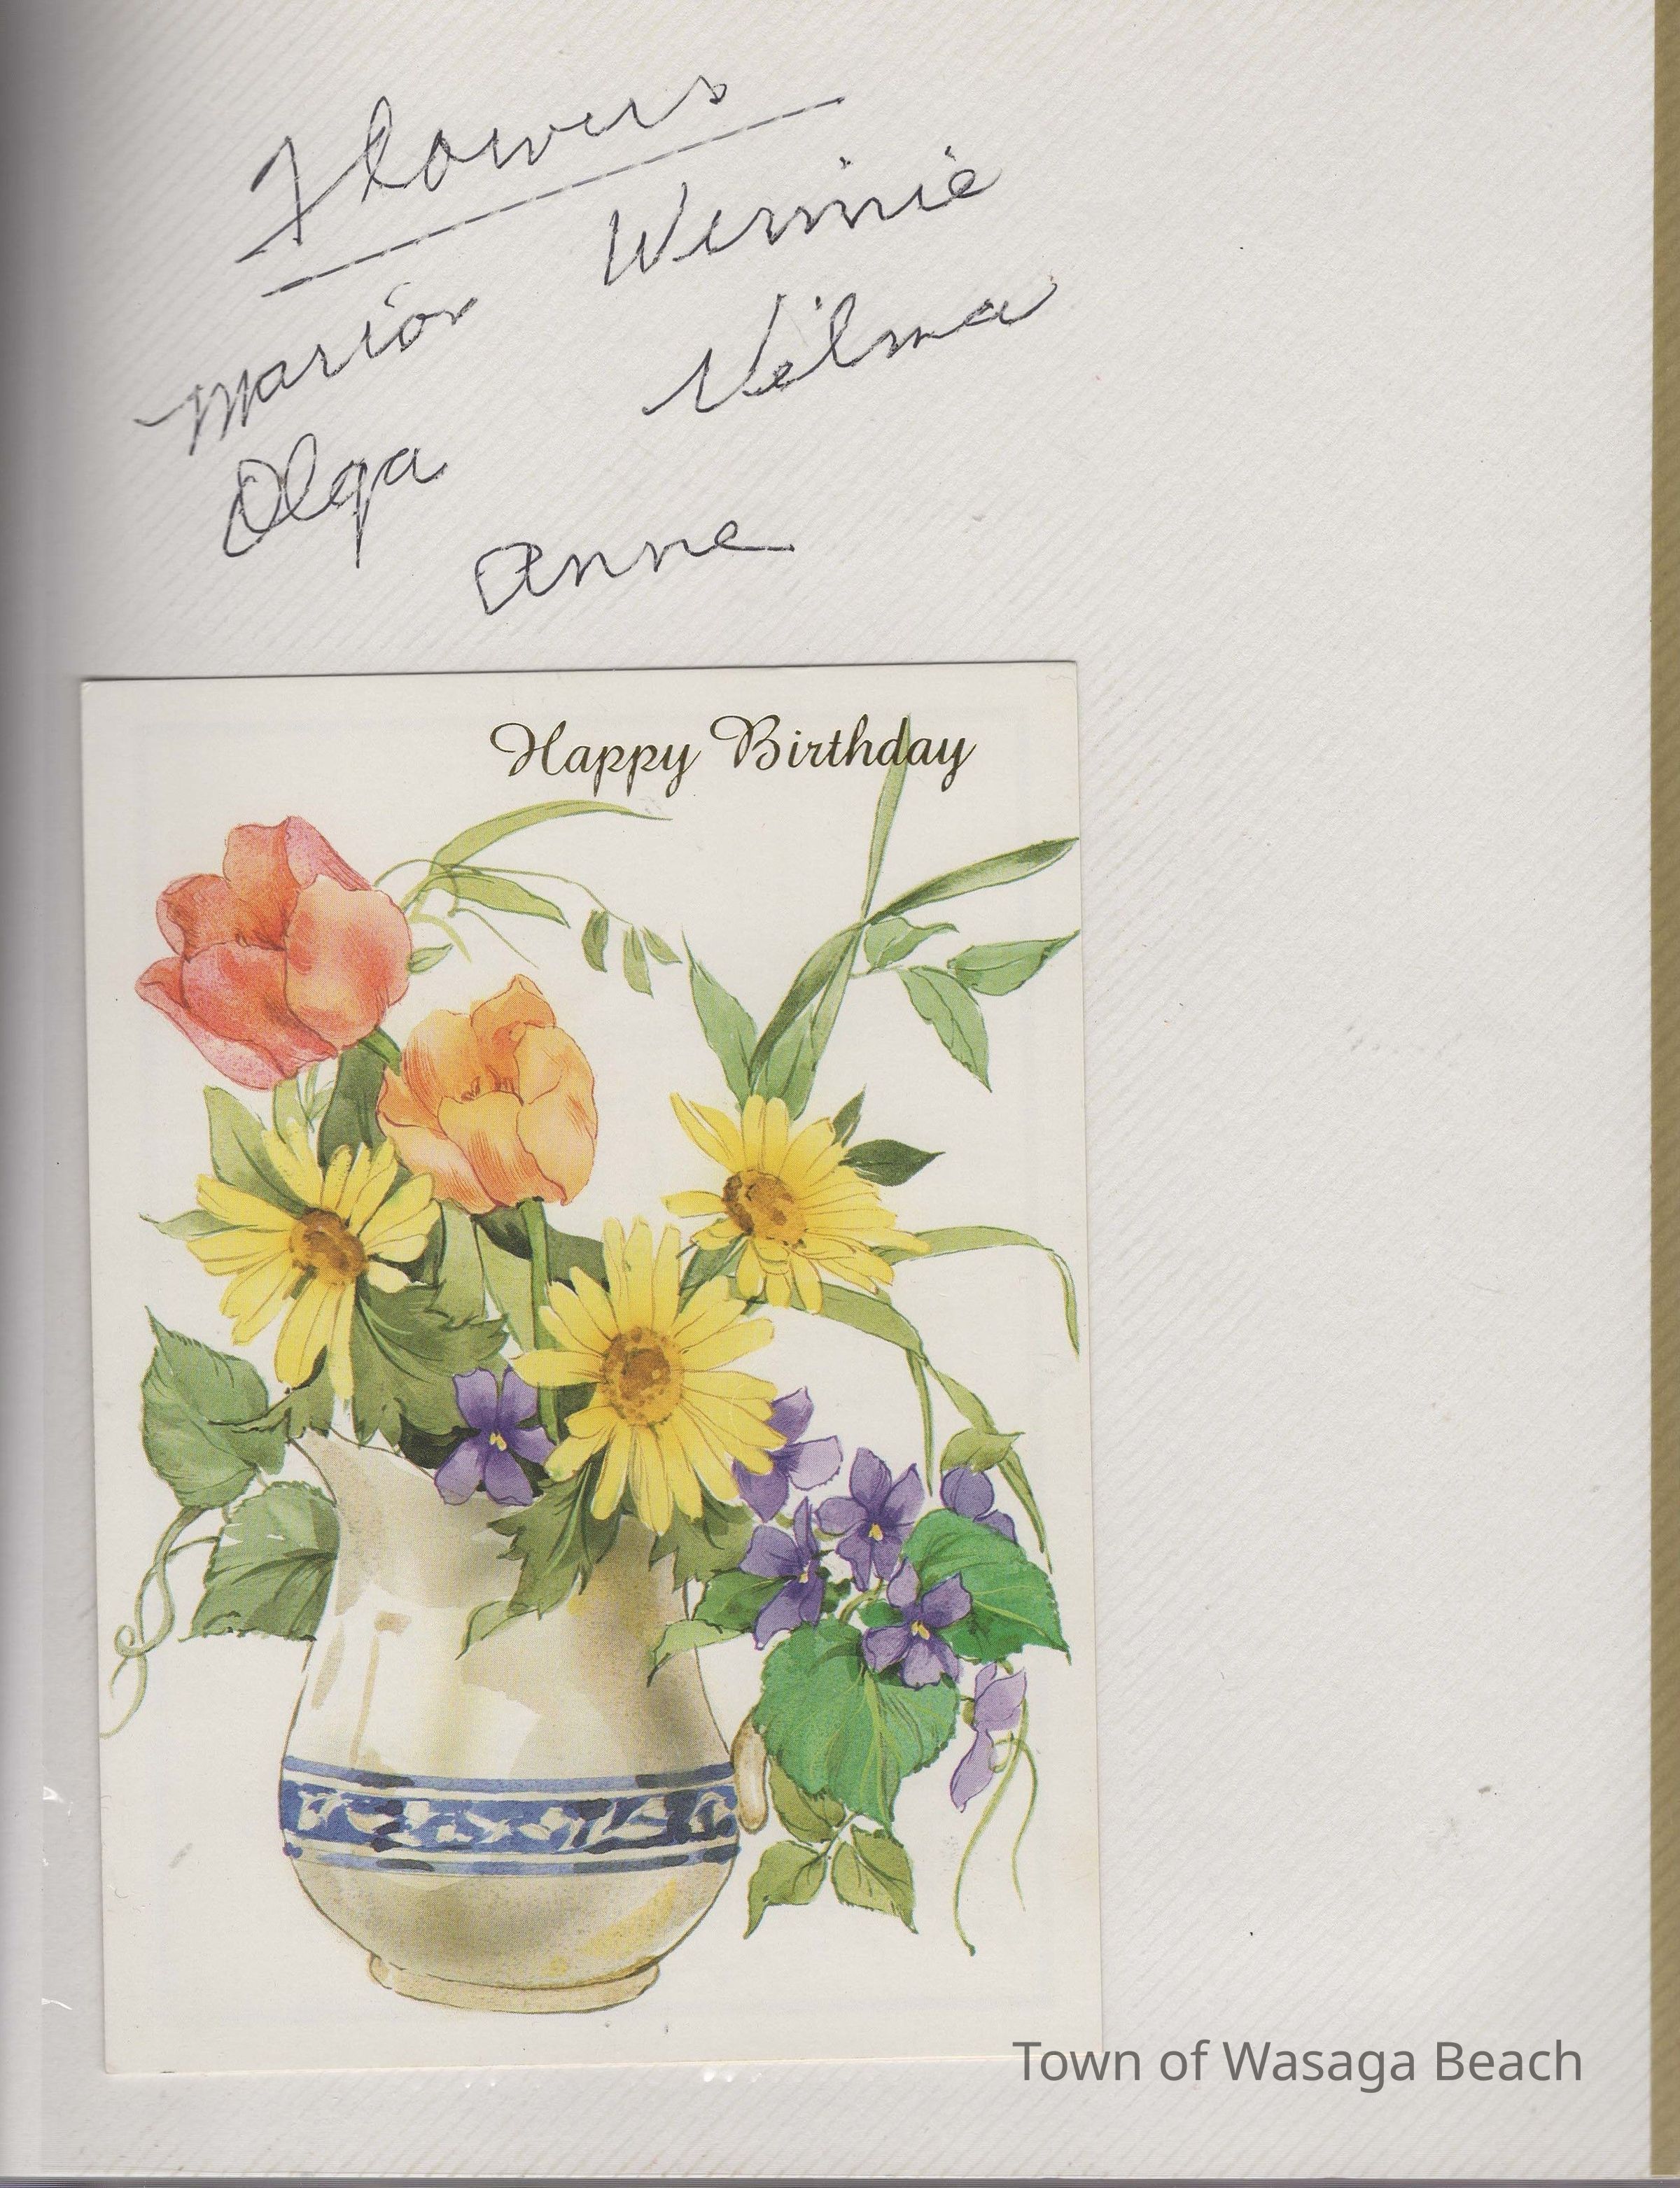 Flowers
Marion Winnie
Olga Vilma
Anne
Happy Birthday
Town of Wasaga Beach